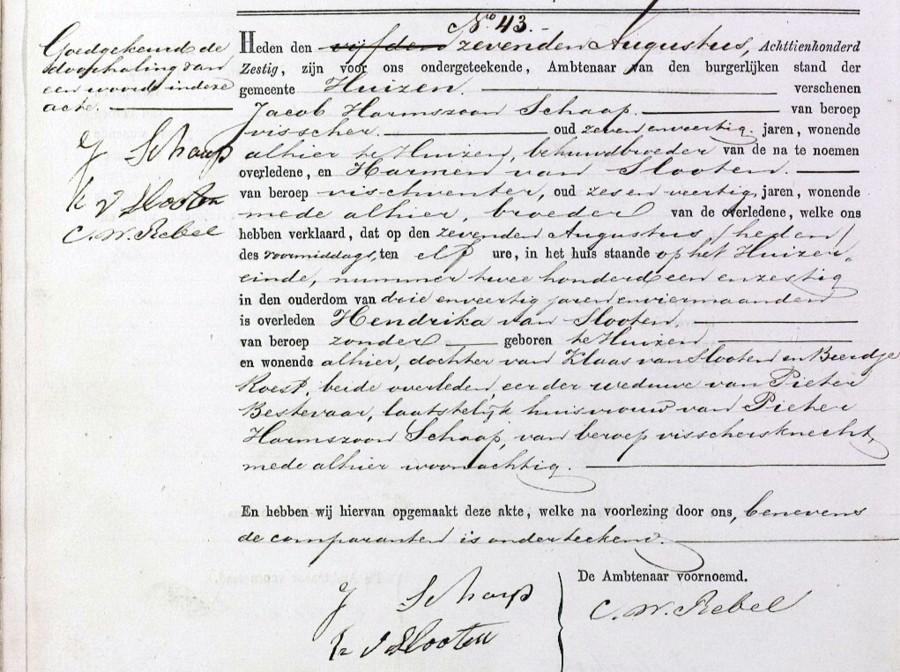 No. 43.
Goedgekeurd de
doorhaling van
een woord in deze
acte.
J Schaap
C. W. Rebel
Heden den vijfden zevenden Augustus, Achttienhonderd
Zestig, zijn voor ons ondergeteekende, Ambtenaar van den burgerlijken stand der
gemeente Huizen. verschenen
Jacob Harmszoon Schaap. van beroep
visscher. oud zeven en veertig. jaren, wonende
alhier te Huizen, behuwdbroeder van de na te noemen
overledene, en Harmen van Slooten.
van beroep vischventer, oud zes en veertig, jaren, wonende
mede alhier, broeder van de overledene, welke ons
hebben verklaard, dat op den zevenden Augustus /heden/
des voormiddags, ten elf ure, in het huis staande op het Huizer-
einde, nummer twee honderd een en zestig
in den ouderdom van drie en veertig jaren en vier maanden
is overleden Hendrika van Slooten.
van beroep zonder geboren te Huizen
en wonende alhier, dochter van Klaas van Slooten en Beertje
Koest, beide overleden, eerder weduwe van Pieter
Bestevaar, laatstelijk huisvrouw van Pieter
Harmszoon Schaap, van beroep visschersknecht,
mede alhier woonachtig.
En hebben wij hiervan opgemaakt deze akte, welke na voorlezing door ons, benevens
de comparanten is onderteekend.
De Ambtenaar voornoemd.
J Schaap
C. W. Rebel